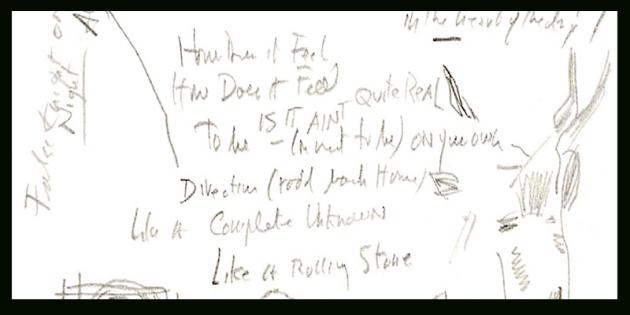 in the heart of the day
False Knight on
Night
How Does it Feel
How Does it Feel
IS IT AINT QUITE REAL
To be - (or not to be) on your own
Direction (road back Home)
Like A Complete Unknown
Like A Rolling Stone